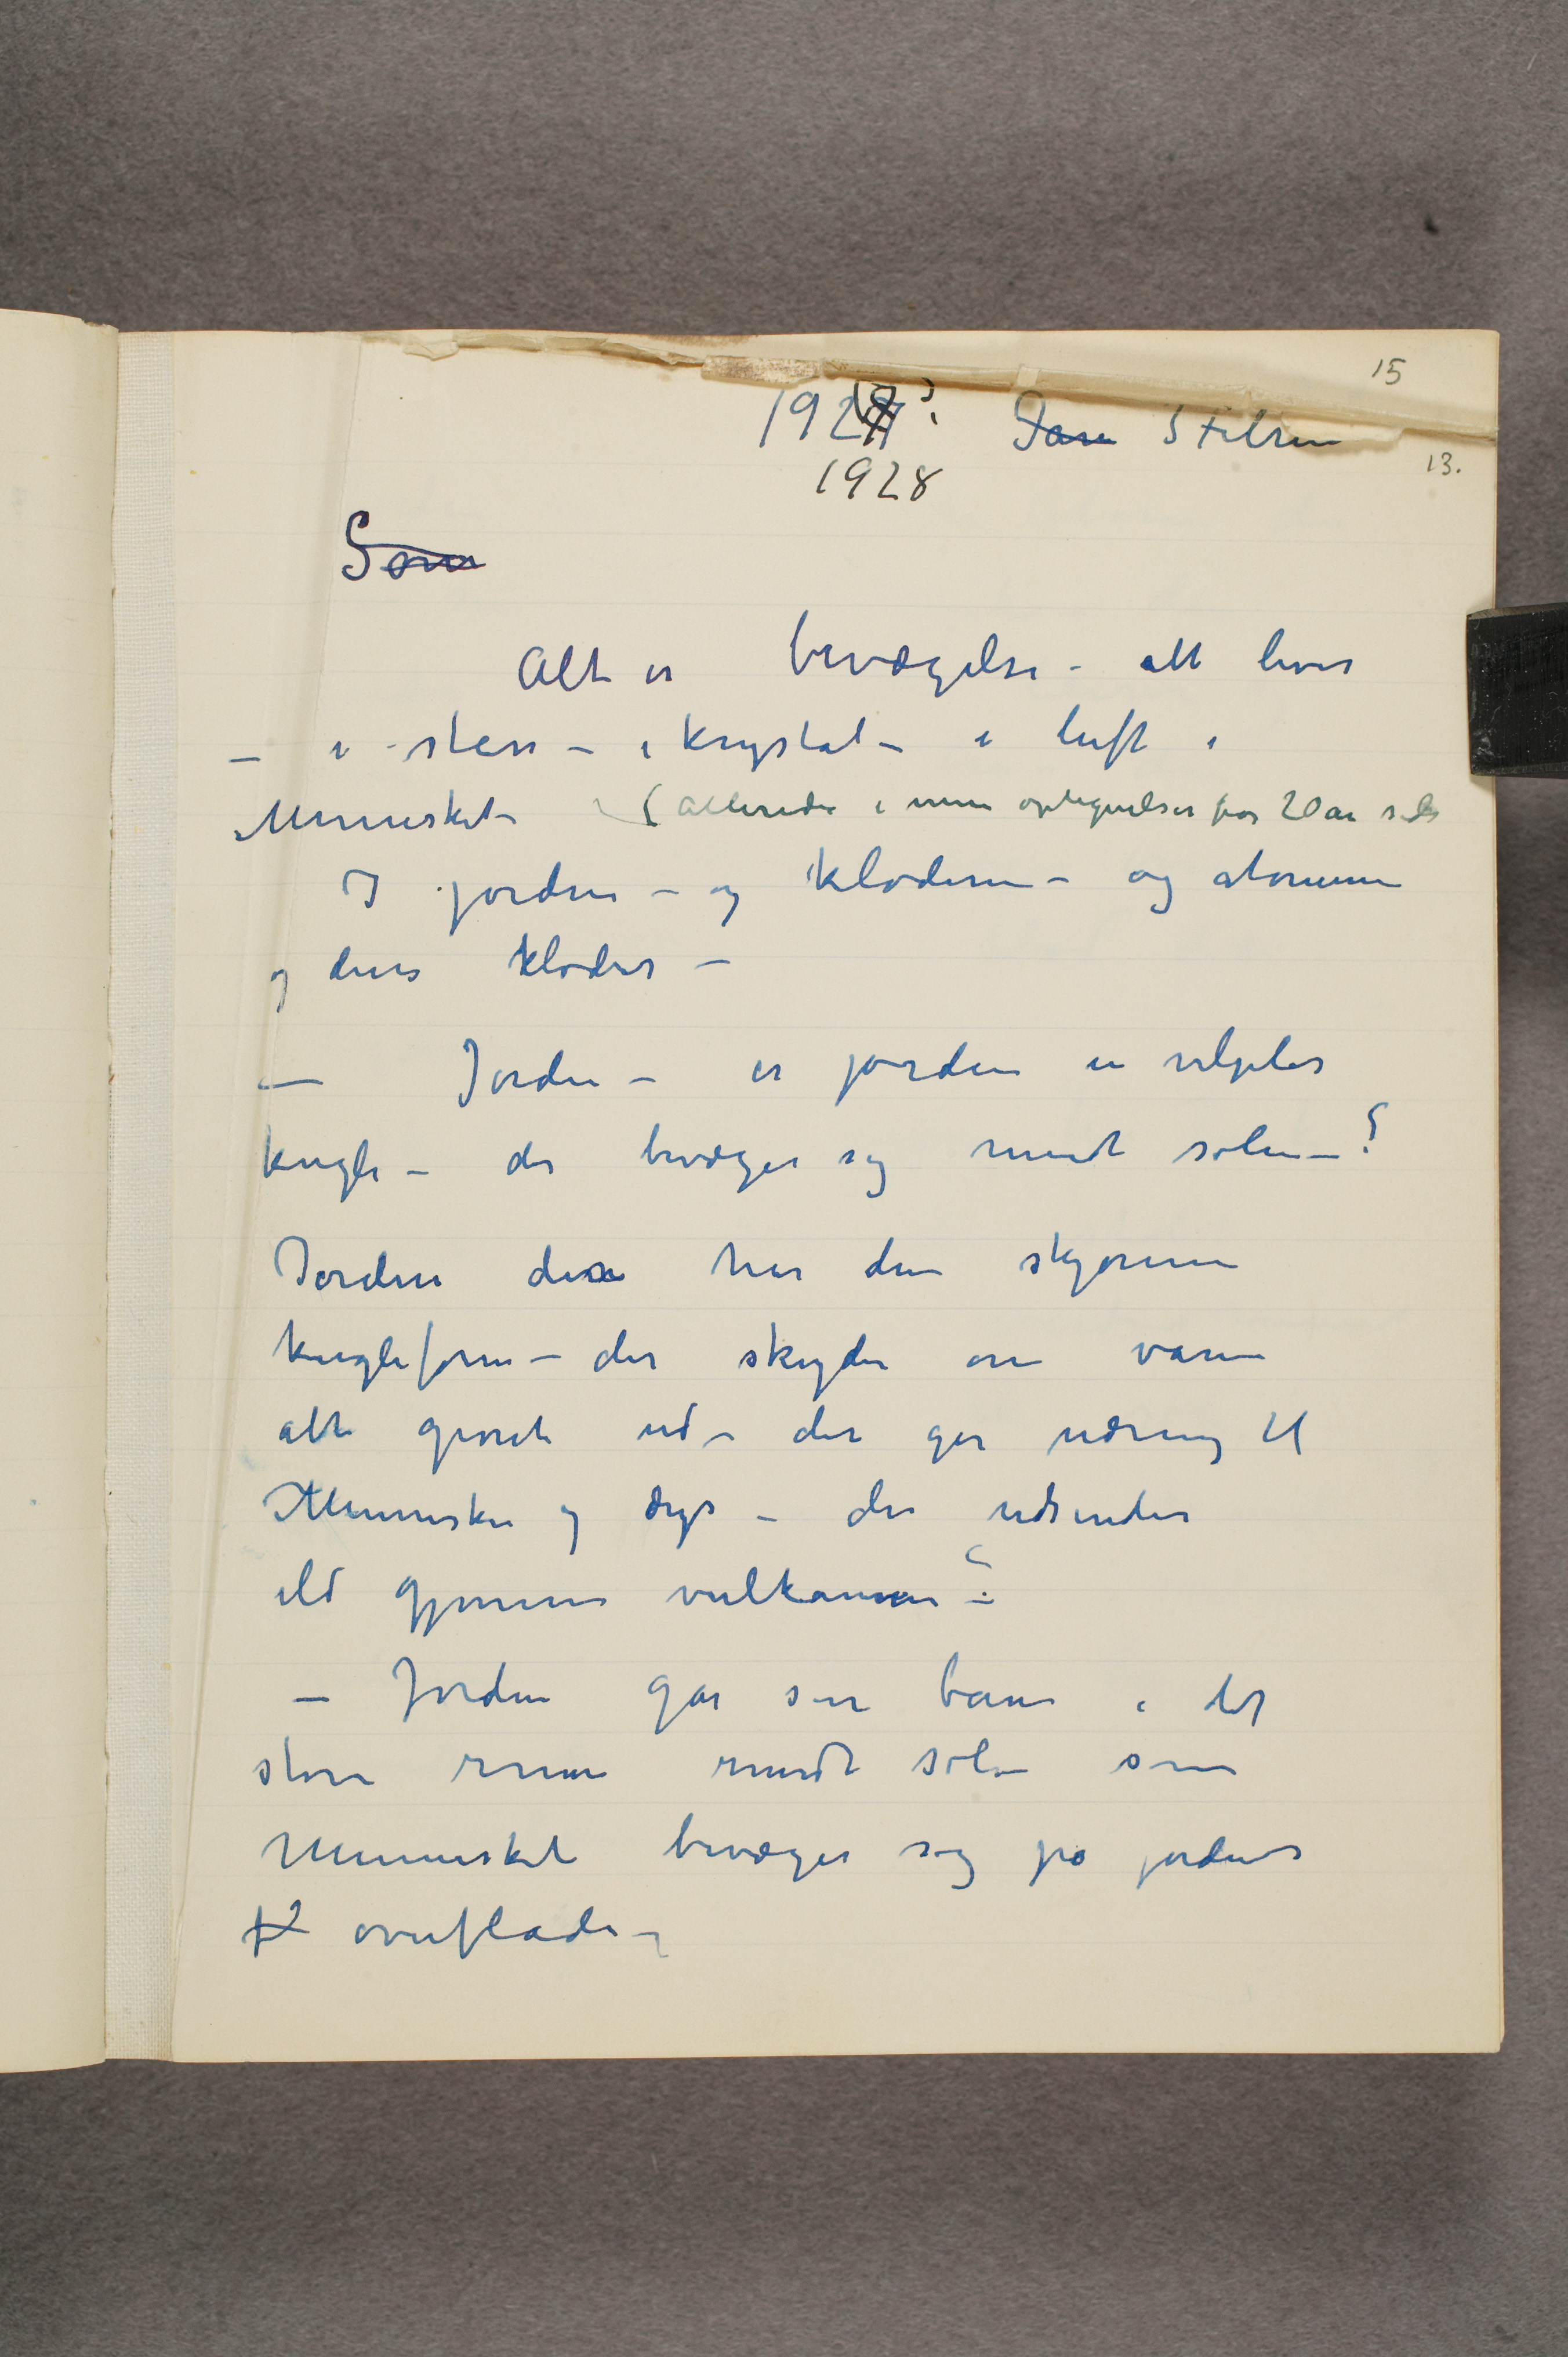 15
1927? Stilren
13.
1928
Som
Alt er bevægelse – alt lever
– i sten – i krystal – i luft i
Mennesket (allerede i mine optegnelser for 20 år siden
I jorden – og kloderne – og atomerne
og deres kloder –
– Jorden – er jorden en velpler
kugle – der bevæger sig rundt solen – ?
Jorden den har den skjønne
kugleform – der skyder om varen
alt groende ud – der ger næring til
Mennesker og dyr – der udsender
ild gjennem vulkanen – ?
– Jorden går sin bane i det
store rum rundt solen som
Mennesket bevæger sig på jordens
overflade –